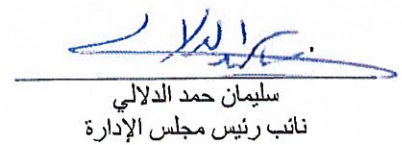 سليمان حمد الدلالي
نائب رئيس مجلس الإدارة